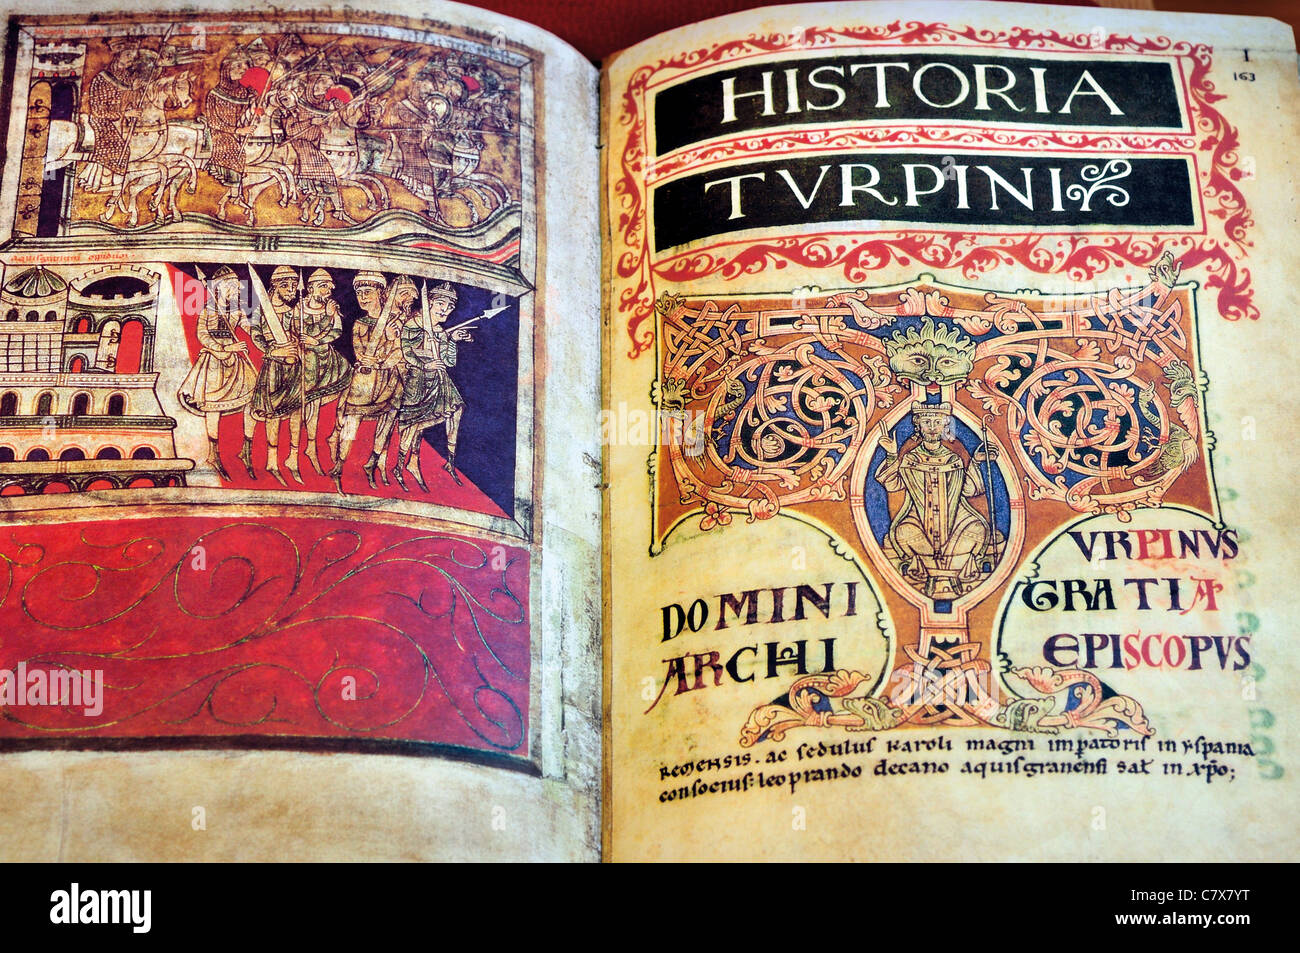 aquisgranum opidum
I
163
HISTORIA
TVRPINI
VRPINVS
DOMINI GRATIA
ARCHI EPISCOPVS
REMENSIS. ac sedulus karoli magni imperatoris in yspania
consocius: leoprando decano aquisgranensi sal in xpo;
alamy
Image ID: C7X7YT
www.alamy.com